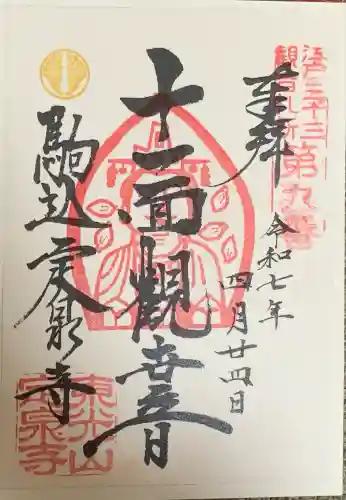 江戸三十三
観音札所
第九番
奉拝
令和七年
四月廿四日
十一面觀世音
駒込定泉寺
東光山
定泉寺